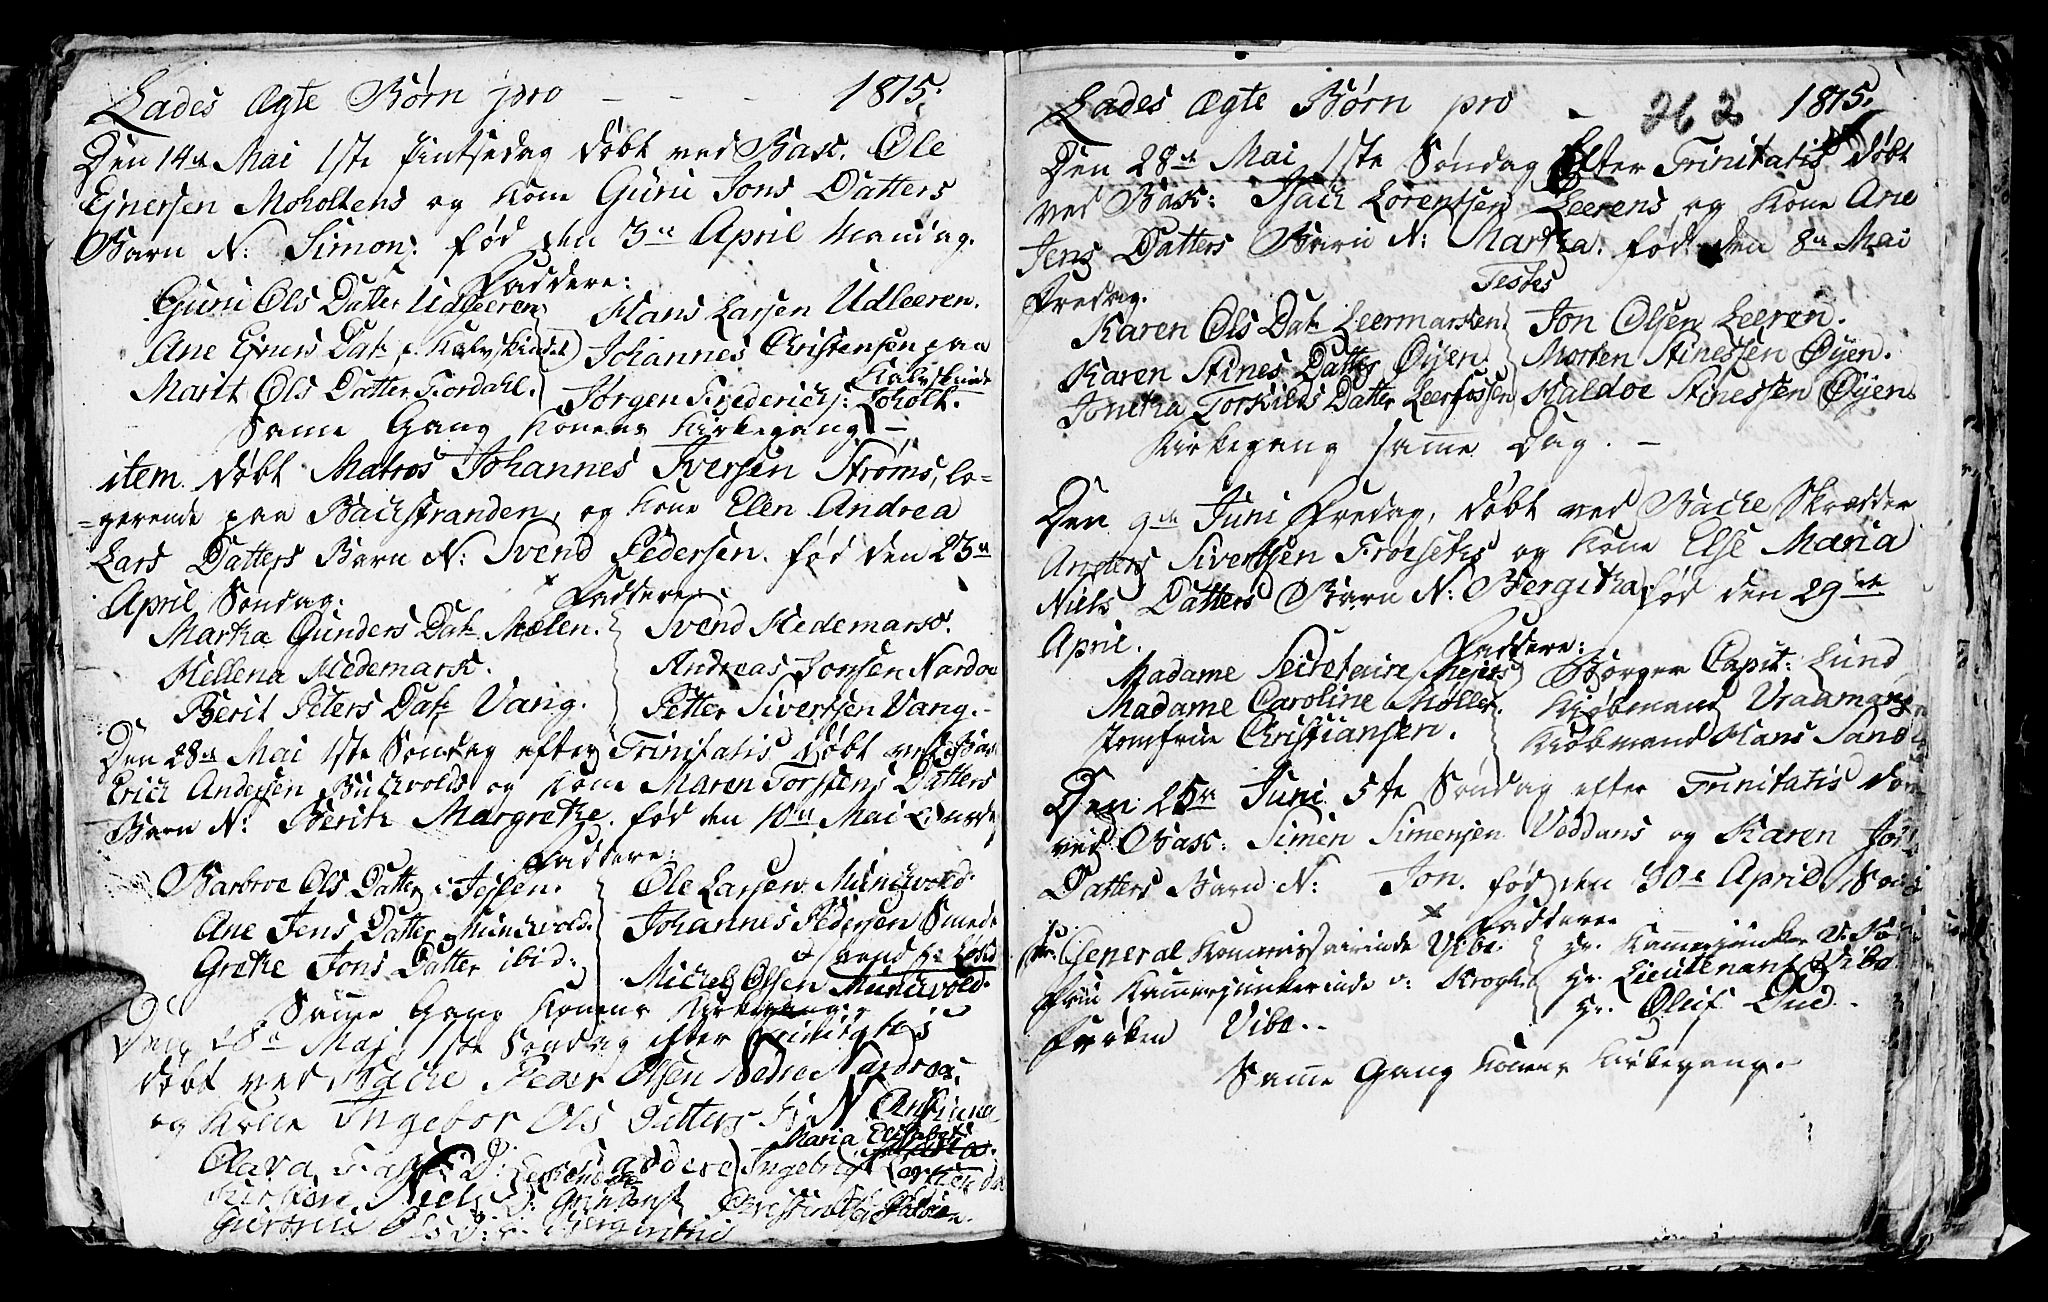 Lades Ægte Børn pro - - - 1815.
Den 14de Mai 1ste Pintsedag døbt ved Bax. Ole
Ejnersen Moholtens og Kone Guru Jons Datters
Barn N: Simon. fød den 3de April Mandag.
Faddere:
Guru Ols Datter Udleeren
Ane Ejners Dat: Kalvskindet
Marit Ols Datter Fiordahl.
Hans Larsen Udleeren.
Johannes Christensen paa
Kalvskindet
Jørgen Frederichs: Loholt.
Same Gang Konens Kirkegang -
item døbt Matros Johannes Iversen Strøms, lo=
=gerende paa Bachstranden, og Kone Elen Andrea
Lars Datters Barn N: Svend Pedersen. fød den 23de
April Søndag.
Faddere
Martha Gunders Dat: Mælen.
Hellena Hedemark.
Berit Peters Dat: Vang.
Svend Hedemark.
Andreas Jonsen Nardoe
Petter Sivertsen Vang.-
Den 28de Mai 1ste Søndag efter Trinitatis døbt ved Bax
Erich Andersen Buchvolds og Kone Maren Torstens Datters
Barn N: Berith Margrethe. fød den 10de Mai
Faddere:
Barbroe Ols Datter Jessen.
Ane Jens Datter Munchvold.
Grethe Jons Datter ibid:
Ole Larsen Munchvold.
Johannes Pedersen Smede
svend
Michel Olsen Munchvold.
Same Gang Konens Kirkegang
Den 28de Maj 1ste Søndag efter Trinitatis
døbt ved Bache Peder Olsen Nedre Nardroe
og Kone Ingebor Ols Datters B: N
Maria Elisabeth
Faddere
Olava
Ingebrigt Larsen
Kirsten Niels D:
Christen
Guronu Ols D:
Lades Ægte Børn pro - 262 1815.
Den 28de Mai 1ste Søndag Efter Trinitatis døbt
ved Bax: Isach Lorentsen Leerens og Kone Ane
Jens Datters Barn N: Martha. fød den 8de Mai
Fredag.
Testes
Karen Ols Dat: Leermarken
Karen Stines Datter Øyen.
Jonetha Torkilds Datter Leerfossen
Jon Olsen Leeren.
Morten Stinessen Øyen.
Haldoe Stinessen Øyen
Kirkegang same Dag. -
Den 9de Juni Fredag, døbt ved Bache Skrædder
Anders Sivertsen Frøseths og Kone Else Maria
Niels Datters Barn N: Bergitha. fød den 29de
April.
Faddere:
Madame Secreteaire Mejers
Madame Caroline Møller.
Jomfrue Christiansen.
Borger Capit: Lund
Kiøbmand Vraamann
Kiøbmand Hans Sand
Den 25de Juni 5te Søndag efter Trinitatis
ved Bax: Simen Simensen Voddans og Karen
Datters Barn N: Jon. fød den 30de April
Faddere
Fru General Kommissairinde Vibe.
Fru Kammerjunkerinde v: Krogh.
Frøken Vibe.-
Hr. Kammerjunker v:
Hr. Lieutenant Vibe
Hr. Oluf Due.-
Same Gang Konens Kirkegang.-